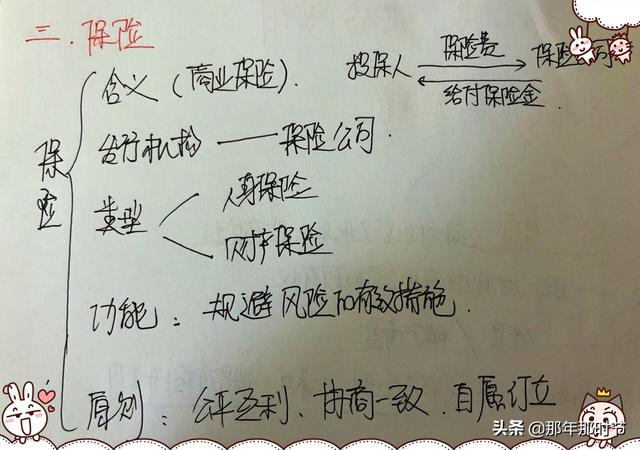 三.保险
含义(商业保险).
投保人 保险费 保险公司
给付保险金
保险
台行机构 — 保险公司.
类型 人身保险
财产保险
功能: 规避风险的有效措施.
原则: 公平互利、协商一致.自愿订立
头条 @那年那时节